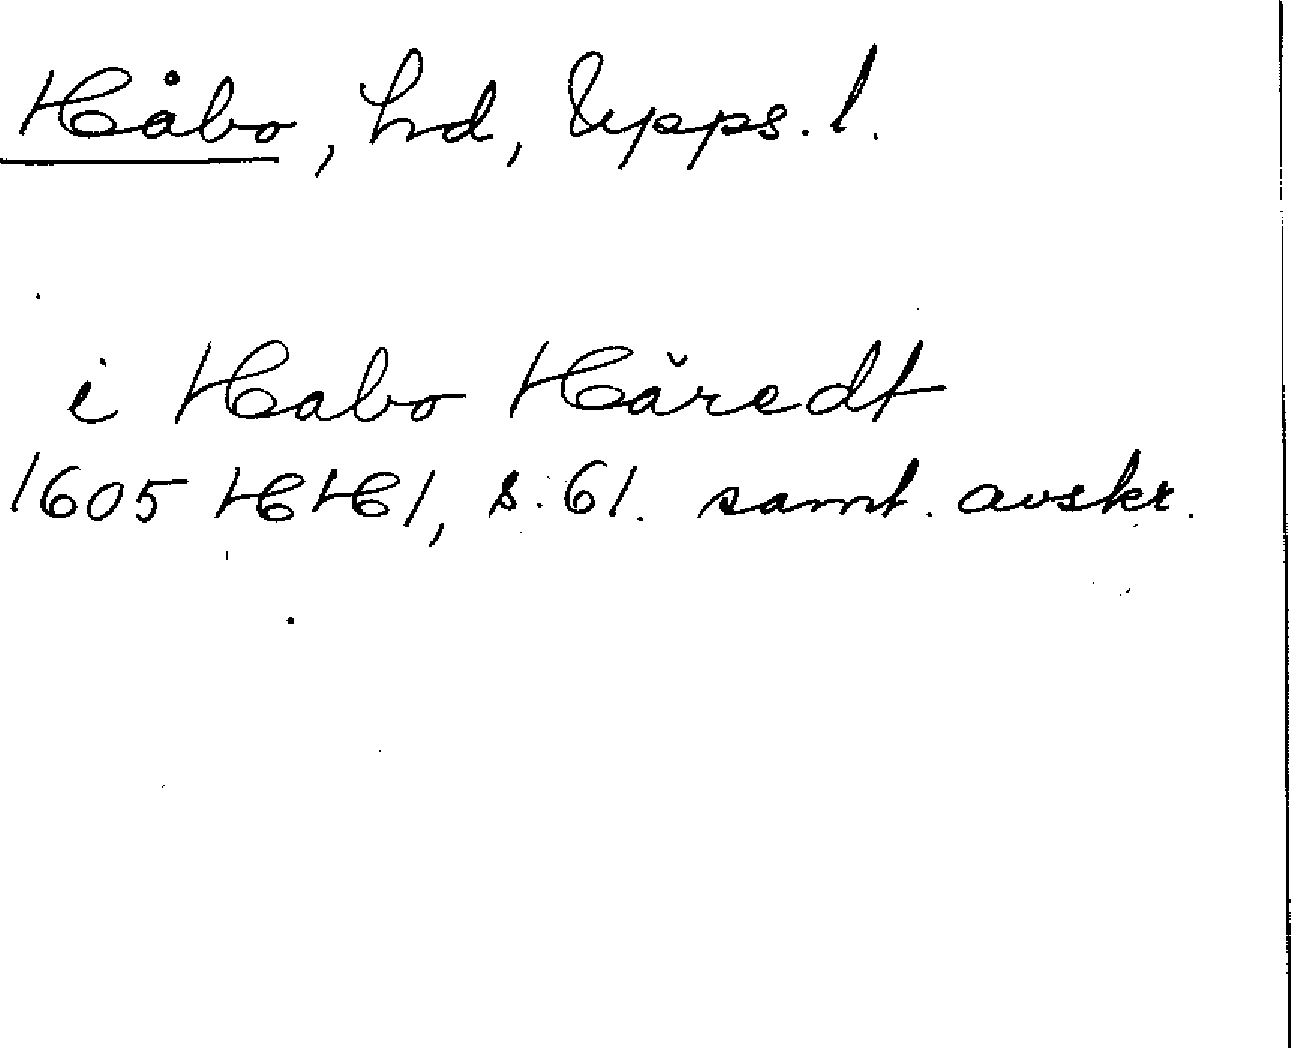 Håbo, hd, Upps. l.
i Habo Hăredt
1605 HH 1, s. 61. samt. avskr.